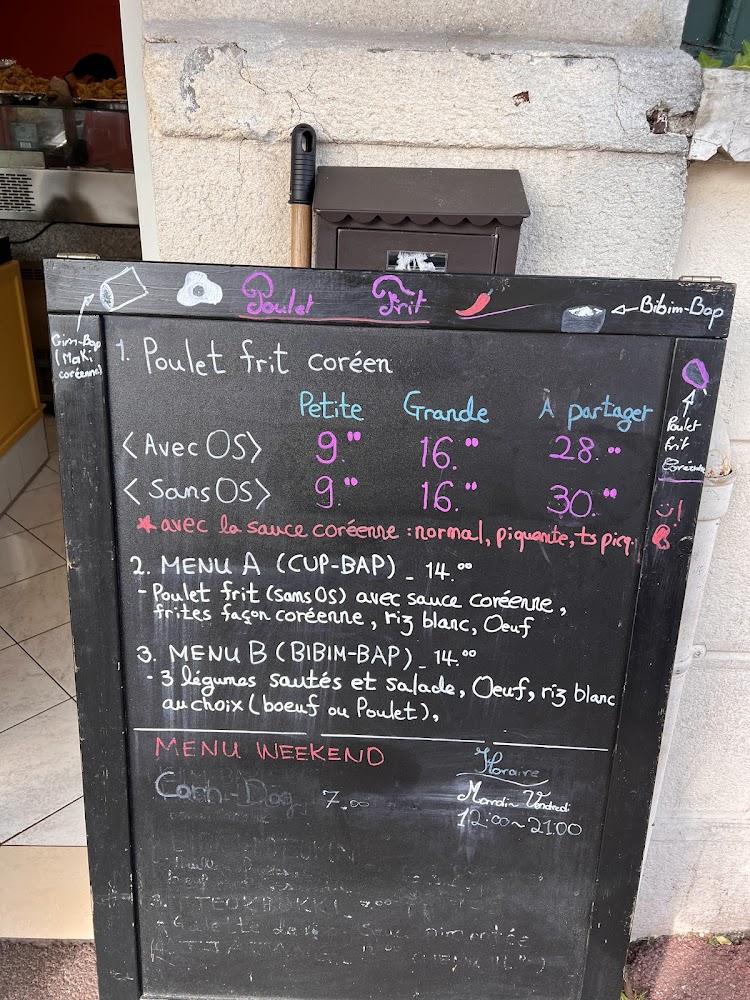 Poulet Frit
Bibim-Bap
Gim-Bap
(Maki
coréenne)
1. Poulet frit coréen
Petite Grande À partager
<Avec OS> 9.°° 16.°° 28.°°
<Sans OS> 9.°° 16.°° 30.°°
* avec la sauce coréenne : normal, piquante, ts picq.
Poulet
frit
2. MENU A (CUP-BAP) _ 14.°°
- Poulet frit (sans OS) avec sauce coréenne,
frites façon coréenne, riz blanc, Oeuf
3. MENU B (BIBIM-BAP) _ 14.°°
- 3 légumes sautés et salade, Oeuf, riz blanc
au choix (boeuf ou Poulet),
MENU WEEKEND
Corn-Dog 7.00
Horaire
Mardi~Vendredi
12:00~21:00
TTEOKBOKKI
- Galette de